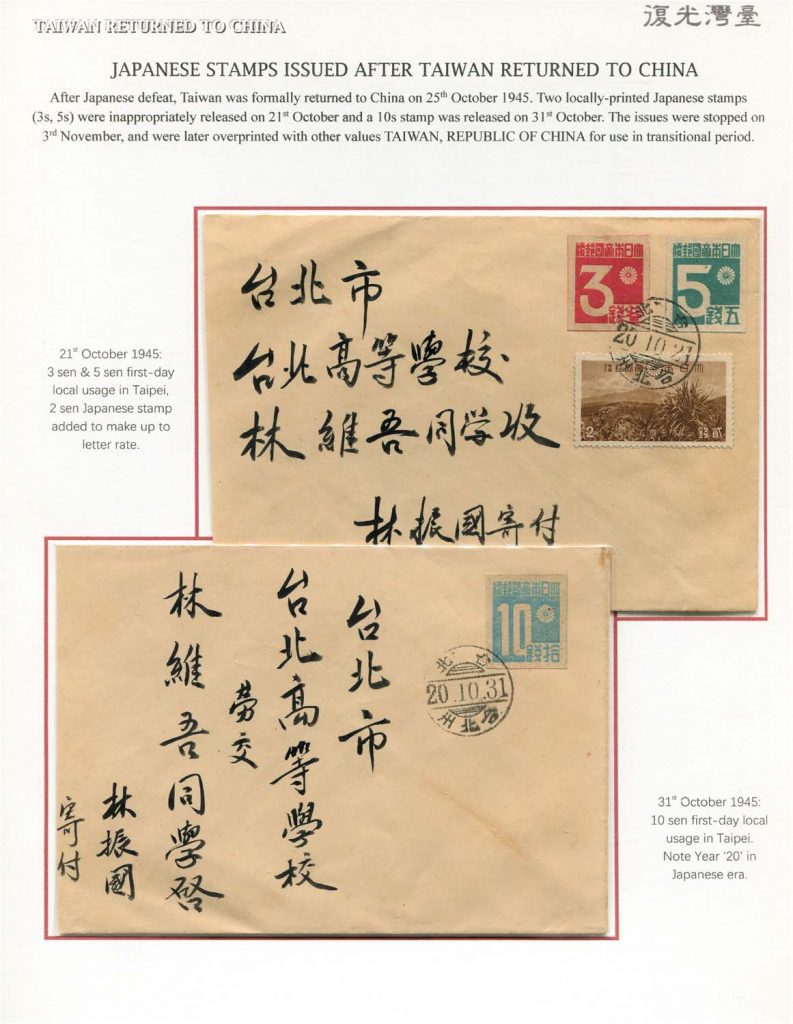 TAIWAN RETURNED TO CHINA
復光灣臺
JAPANESE STAMPS ISSUED AFTER TAIWAN RETURNED TO CHINA
After Japanese defeat, Taiwan was formally returned to China on 25th October 1945. Two locally-printed Japanese stamps
(3s, 5s) were inappropriately released on 21st October and a 10s stamp was released on 31st October. The issues were stopped on
3rd November, and were later overprinted with other values TAIWAN, REPUBLIC OF CHINA for use in transitional period.
21st October 1945:
3 sen & 5 sen first-day
local usage in Taipei,
2 sen Japanese stamp
added to make up to
letter rate.
台北市
台北高等學校
林維吾同学收
林振國寄付
便郵國帝本日大
3
錢叁
便郵國帝本日大
5
錢五
20.10.21
2
錢貳
台北市
台北高等學校
勞交
林維吾同學啓
林振國
寄付
便郵國帝本日大
10
錢拾
台北
20.10.31
31st October 1945:
10 sen first-day local
usage in Taipei.
Note Year '20' in
Japanese era.